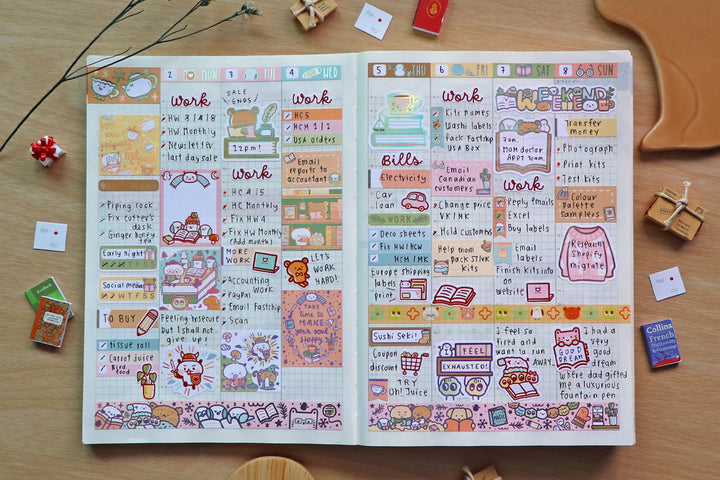 2 MON
3 TUE
4 WED
Early night
Social media
W T F S S
TO BUY
tissue roll
Carrot juice
Bird food
Piping rock
Fix cutter's
desk
Ginger Honey
tea
Work
HW Monthly
Newsletter
last day sale
Feeling insecure
but I shall not
give up!
SALE
ENDS!
12pm!
Work
HC Monthly
Fix HW 4
Fix HW Monthly
(Add month)
MORE
WORK
Accounting
work
PayPal
Email Fastship
Scan
Work
HC 5
HCH 1/2
USA orders
Email
reports to
accountant
LET'S
WORK
HARD!
TAKE
time to
MAKE
your soul
Happy
5 THU
6 FRI
7 SAT
8 SUN
Bills
Electricity
Car
loan
WORK
Deco sheets
Fix HW/HCW
HCH/MK
Europe shipping
labels
print
Sushi Seki!
Coupon
discount
TRY
Oh! Juice
Work
Kits names
Washi labels
Pack Fastship
USA Box
Email
Canadian
customers
Change price
VK/NK
Hold customers
Help mom
pack STNK
kits
I FEEL
EXHAUSTED!
WEEKEND
7am.
MOM doctor
APPT TOWN.
Work
Reply emails
Excel
Buy labels
Email
labels
Finish kits info
on
website
I feel so
tired and
want to run
AWAY.
Transfer
money
Photograph
Print kits
Test kits
Colour
Palette
Samplers
Research
Shopify
migrate
I had a
very
good
dream
GOOD
DREAM
where dad gifted
me a luxurious
fountain pen.
Collins
French
Dictionary